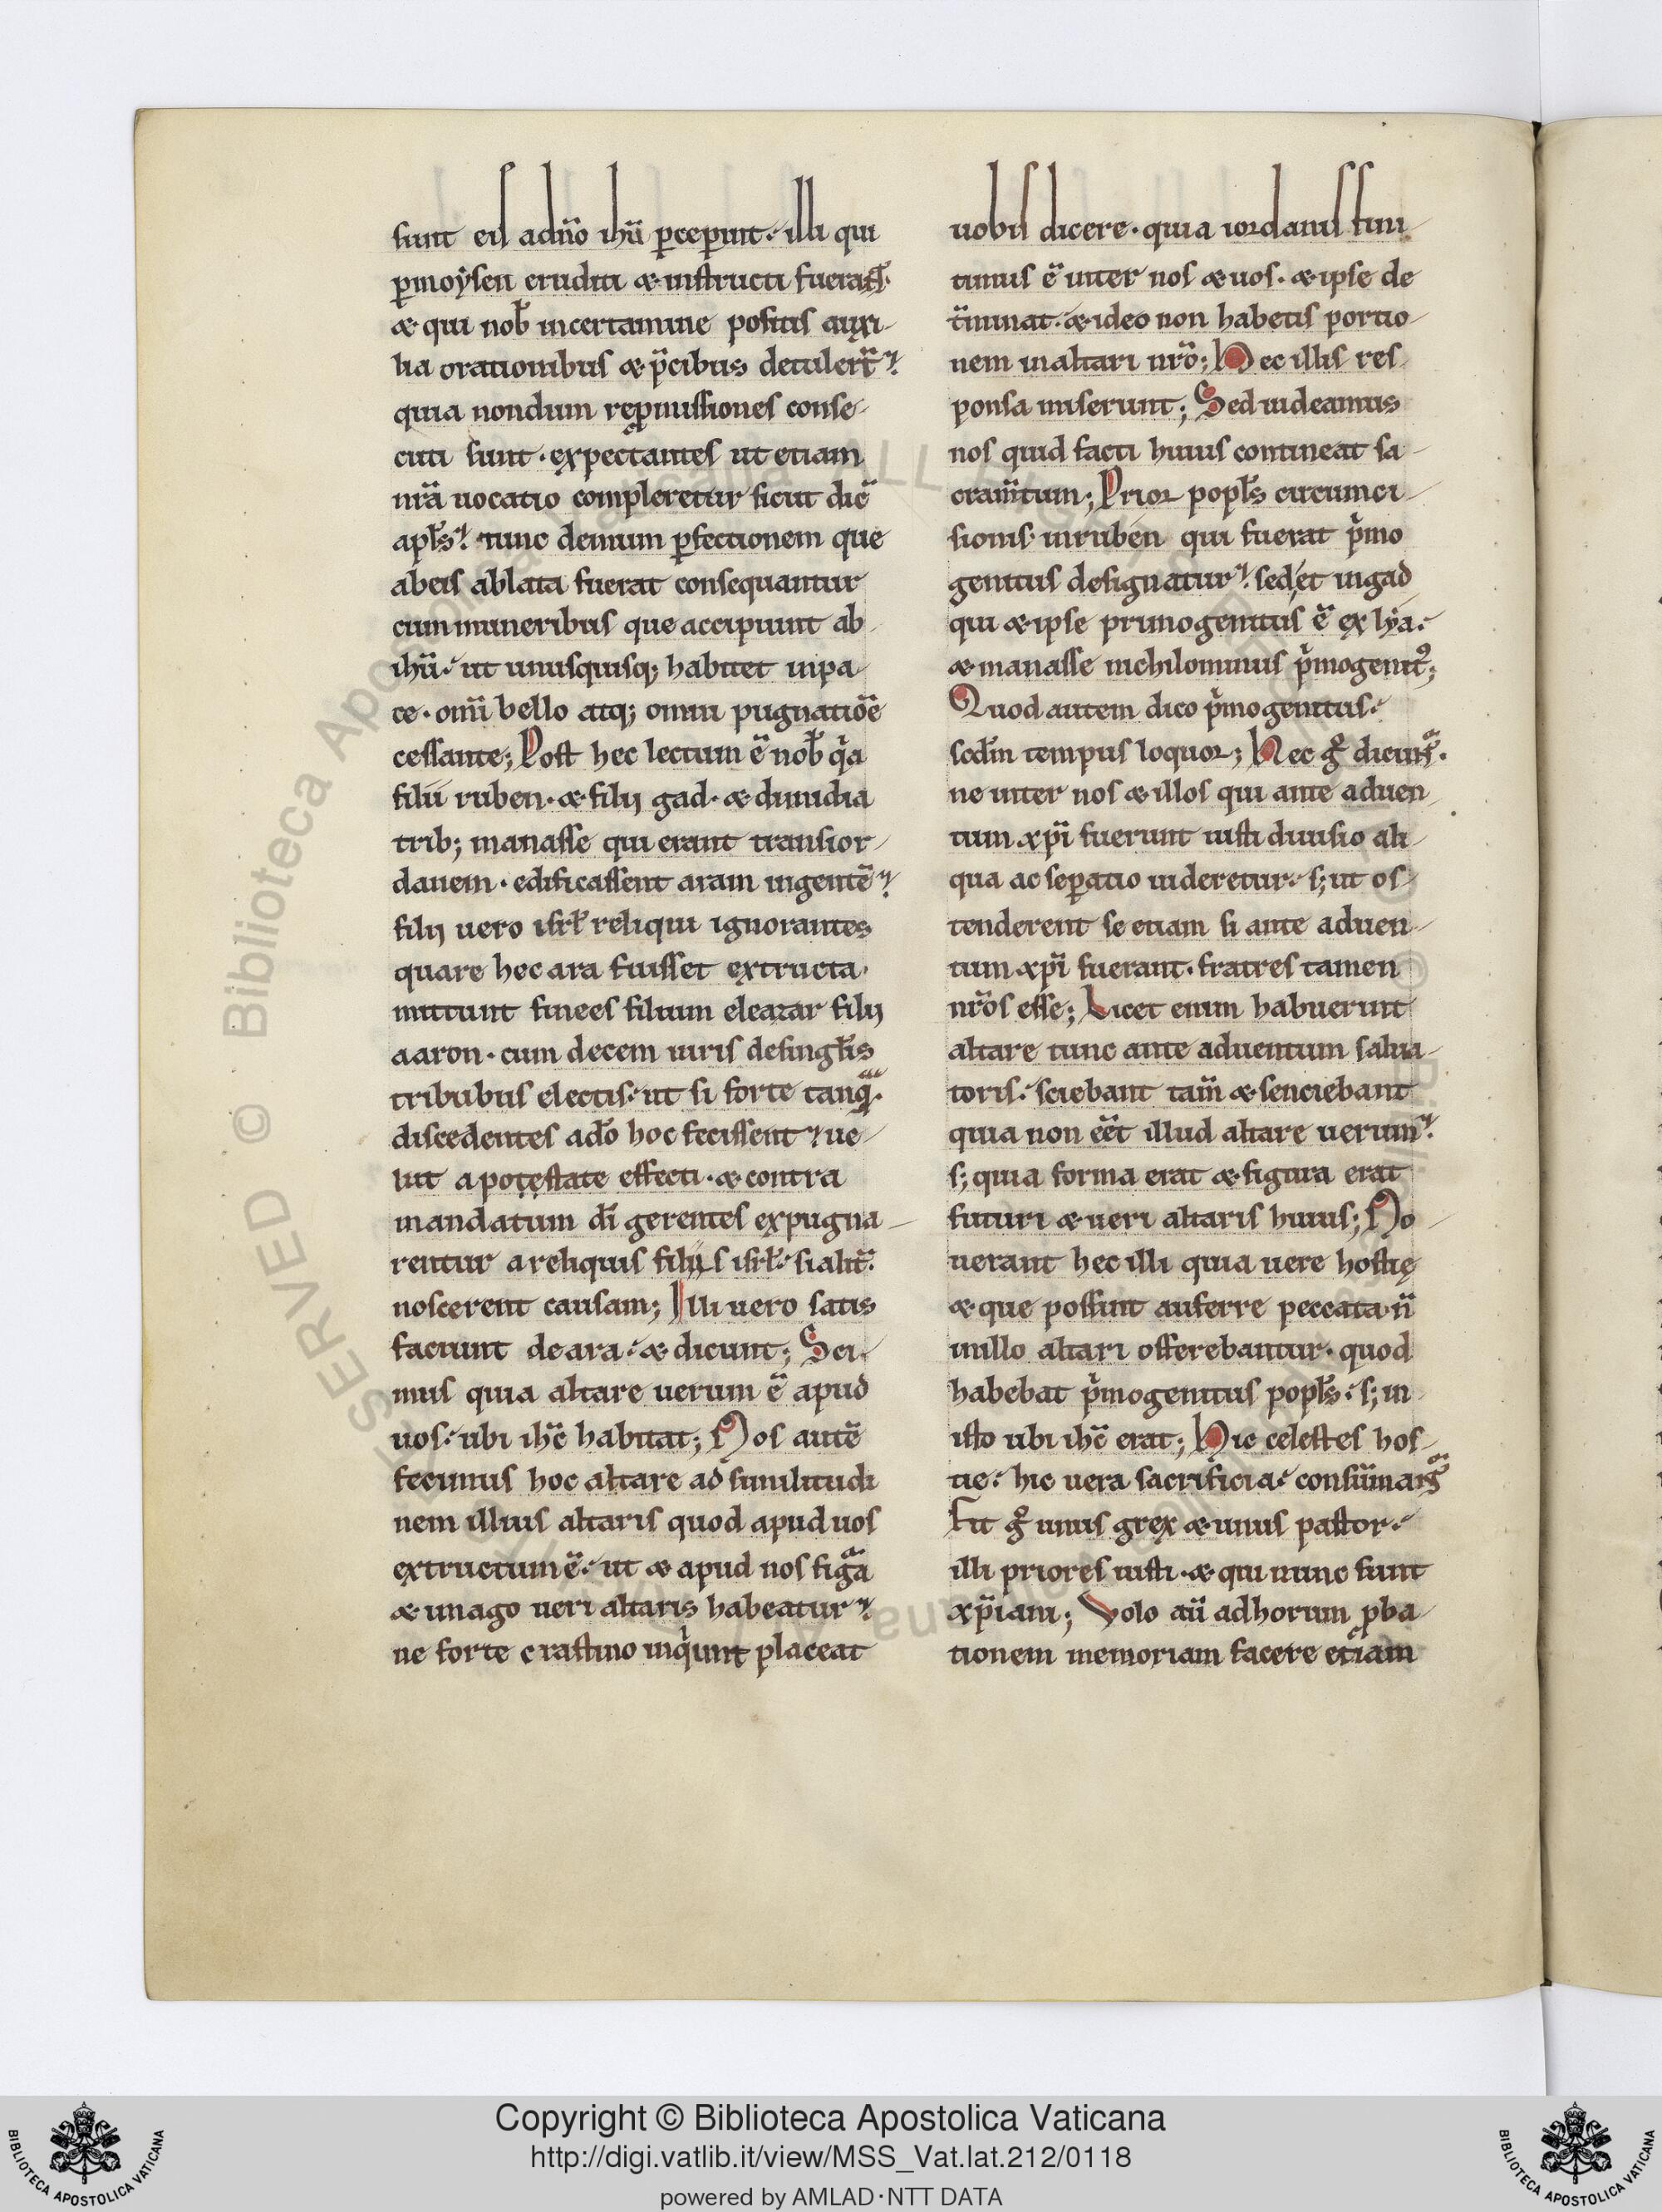 sunt eis adn̄o ihū ꝑceꝑunt. illi qui
ꝑmoẏsen eruditi & instructi fuerant.
& qui nob̄ incertamine positis auxi-
lia orationibus & p̄cibus detuler̄t.
quia nondum reꝓmissiones conse-
cuti sunt. expectantes ut etiam
nr̄a uocatio compleretur sicut dic̄
apl̄s. tunc demum ꝑfectionem que
abeis ablata fuerat consequantur
cum muneribus que accipiunt ab
ihū. ut unusquisq; habitet inpa-
ce. om̄i bello atq; omni pugnatiōe
cessante; Post hec lectum ē nob̄ qͥa
filii ruben. & filij gad. & dimidia
trib; manasse qui erant transior-
danem. edificassent aram ingentē
filij uero isrl̄ reliqui ignorantes
quare hec ara fuisset extructa.
mittunt finees filium eleazar filij
aaron. cum decem uiris desingl̄is
tribubus electis. ut si forte tanqͣ.
discedentes adō hoc fecissent ue-
lut apotestate effecti. & contra
mandatum dī gerentes expugna-
rentur areliquis filijs isrl̄. sialit̄.
noscerent causam; Illi uero satis
faciunt deara. & dicunt; Sci-
mus quia altare uerum ē apud
uos. ubi ihc̄ habitat; Nos autē
fecimus hoc altare ad similitudi
nem illius altaris quod apud uos
extructum ē. ut & apud nos figͣa
& imago ueri altaris habeatur
ne forte crastino inqͥunt placeat
uobis dicere. quia iordanis fini
timus ē inter nos & uos. & ipse de
t̄minat. & ideo non habetis portio-
nem inaltari nr̄o; Hec illis res-
ponsa miserunt; Sed uideamus
nos quid facti huius contineat sa-
cram̄tum; Prior popl̄s circumci-
sionis. inruben qui fuerat pͥmo
genitus designatur. sed et ingad
qui & ipse primogenitus ē ex lya.
& manasse nichilominus pͥmogenitꝰ;
Quod autem dico pͥmogenitus.
scd̄m tempus loquor; Hec gͦ dicunt̃.
ne inter nos & illos qui ante aduen
tum xp̄i fuerunt iusti diuisio ali-
qua ac seꝑatio uideretur. s; ut os-
tenderent se etiam si ante aduen-
tum xp̄i fuerant. fratres tamen
nr̄os esse; Licet enim habuerunt
altare tunc ante aduentum salua-
toris. sciebant tam̄ & senciebant
quia non eēt illud altare uerum.
s; quia forma erat & figura erat
futuri & ueri altaris huius; No-
uerant hec illi quia uere hostię
& que possint auferre peccata n̄
inillo altari offerebantur. quod
habebat pͥmogenitus popl̄s. s; in
isto ubi ihc̄ erat; Hic celestes hos-
tie. hic uera sacrificia. consūmant̃
Fit gͦ unus grex & unus pastor.
illi priores iusti. & qui nunc sunt
xp̄iani; Volo aū adhorum ꝓba-
tionem memoriam facere etiam
Copyright © Biblioteca Apostolica Vaticana
http://digi.vatlib.it/view/MSS_Vat.lat.212/0118
powered by AMLAD·NTT DATA
BIBLIOTECA APOSTOLICA VATICANA
BIBLIOTECA APOSTOLICA VATICANA